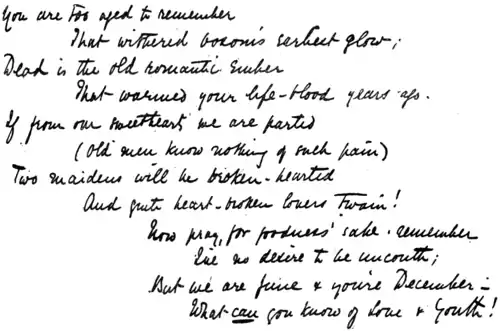 You are too aged to remember
That withered bosom's earliest glow;
Dead is the old romantic ember
That warmed your life-blood years ago.
If from our sweethearts we are parted
(Old men know nothing of such pain)
Two maidens will be broken-hearted
And quite heart-broken lovers twain!
Now pray, for goodness' sake, remember
I've no desire to be uncouth;
But we are June & you're December –
What can you know of Love & Youth!